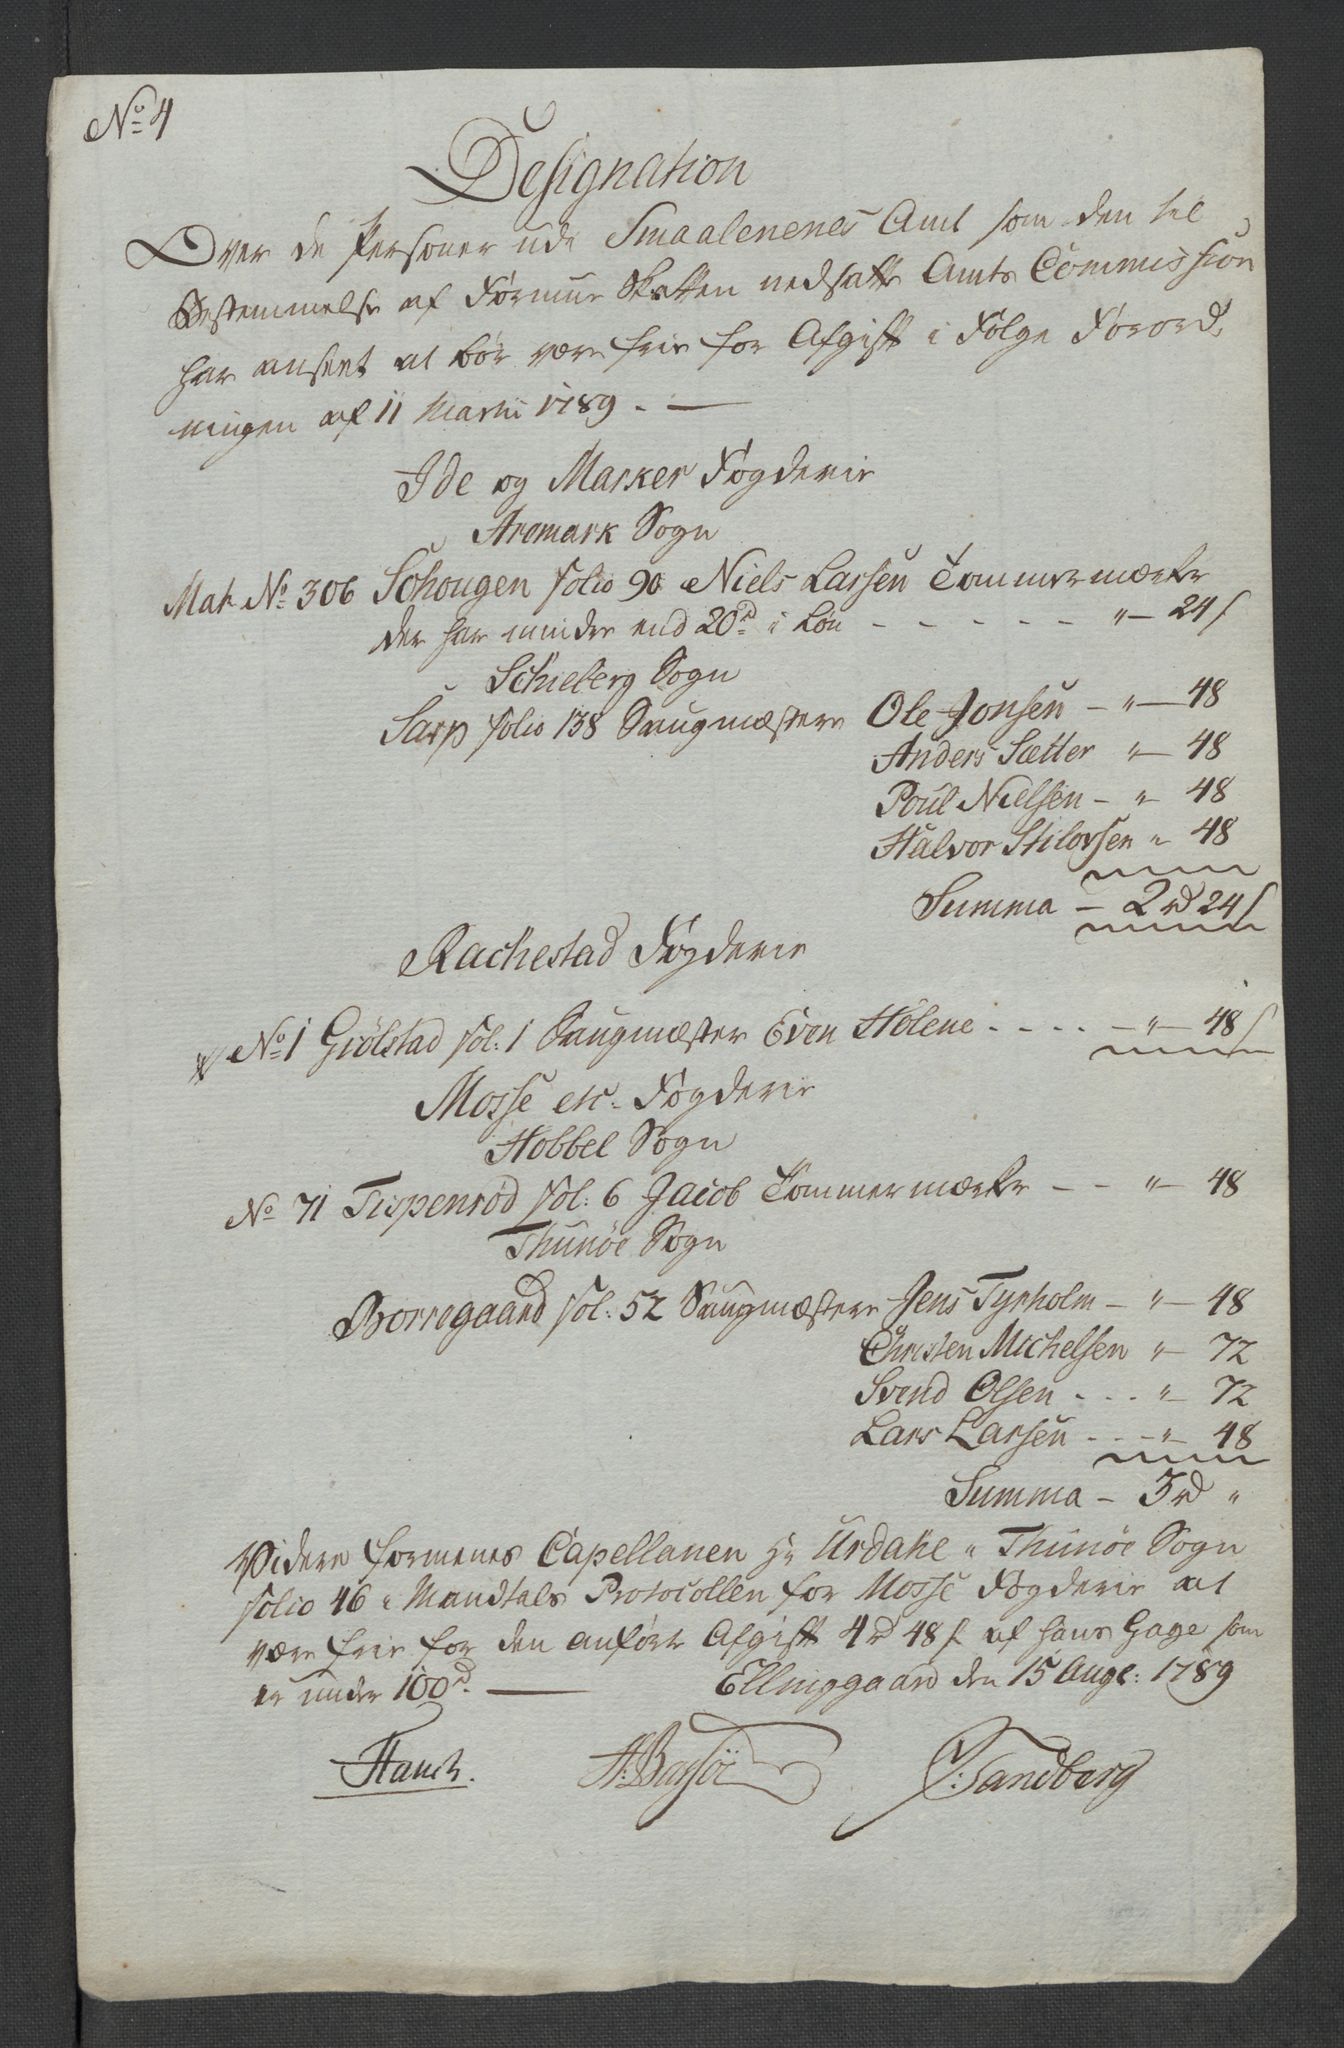 No 4
Designation
Over de Personer udi Smaalenenes Amt som den til
Bestemmelse af Formue Skatten nedsatte Amts Commission
har anseet at bør være frie for Afgift i Følge Forord,,
ningen af 11 Martii 1789. —
Ide og Marker Fogderie
Aremark Sogn
Mat No 306 Schougen folio 90 Niels Larsen Tømmermærker
der har mindre end 20rd i Løn - - - - - " — 24 s
Schieberg Sogn
Sarp folio 138 Saugmæstere Ole Jonsen — " — 48
Anders Sætter " — 48
Poul Nielsen — " — 48
Halvor Stilovsen " 48
Summa — 2 rd 24 s
Rachestad Fogderie
No 1 Giölstad fol: 1 Saugmæster Even Holene - - - - — " — 48 s
Mosse etc. Fogderie
Hobbel Sogn
No 71 Tispenrød fol: 6 Jacob Tømmermærker — — " — 48
Thunøe Sogn
Borregaard fol: 52 Saugmæstere Jens Tyrholm — " — 48
Christen Michelsen " — 72
Svend Olsen - - - " — 72
Lars Larsen - - - " — 48
Summa — 3 rd "
Videre formenes Capellanen Hr Urdahl i Thunøe Sogn
folio 46 i Mandtals Protocollen for Mosse Fogderie at
være frie for den anførte Afgift 4 rd 48 s af hans Gage som
er under 100 rd. — Ellinggaard den 15 Augs: 1789
Hauch. H: Barsöe Sandberg